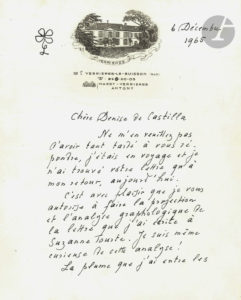 VERRIÈRES
VERRIÈRES-LE-BUISSON
MASSY-VERRIÈRES
ANTONY
6 Décembre
1965
Chère Denise de Castilla
Ne m'en veuillez pas
d'avoir tant tardé à vous ré-
pondre, j'étais en voyage et je
n'ai trouvé votre lettre qu'à
mon retour, aujourd'hui.
C'est avec plaisir que je vous
autorise à faire la projection
et l'analyse graphologique de
la lettre que j'ai écrite à
Suzanne Tourte. Je suis même
curieuse de cette analyse !
La plume que j'ai entre les